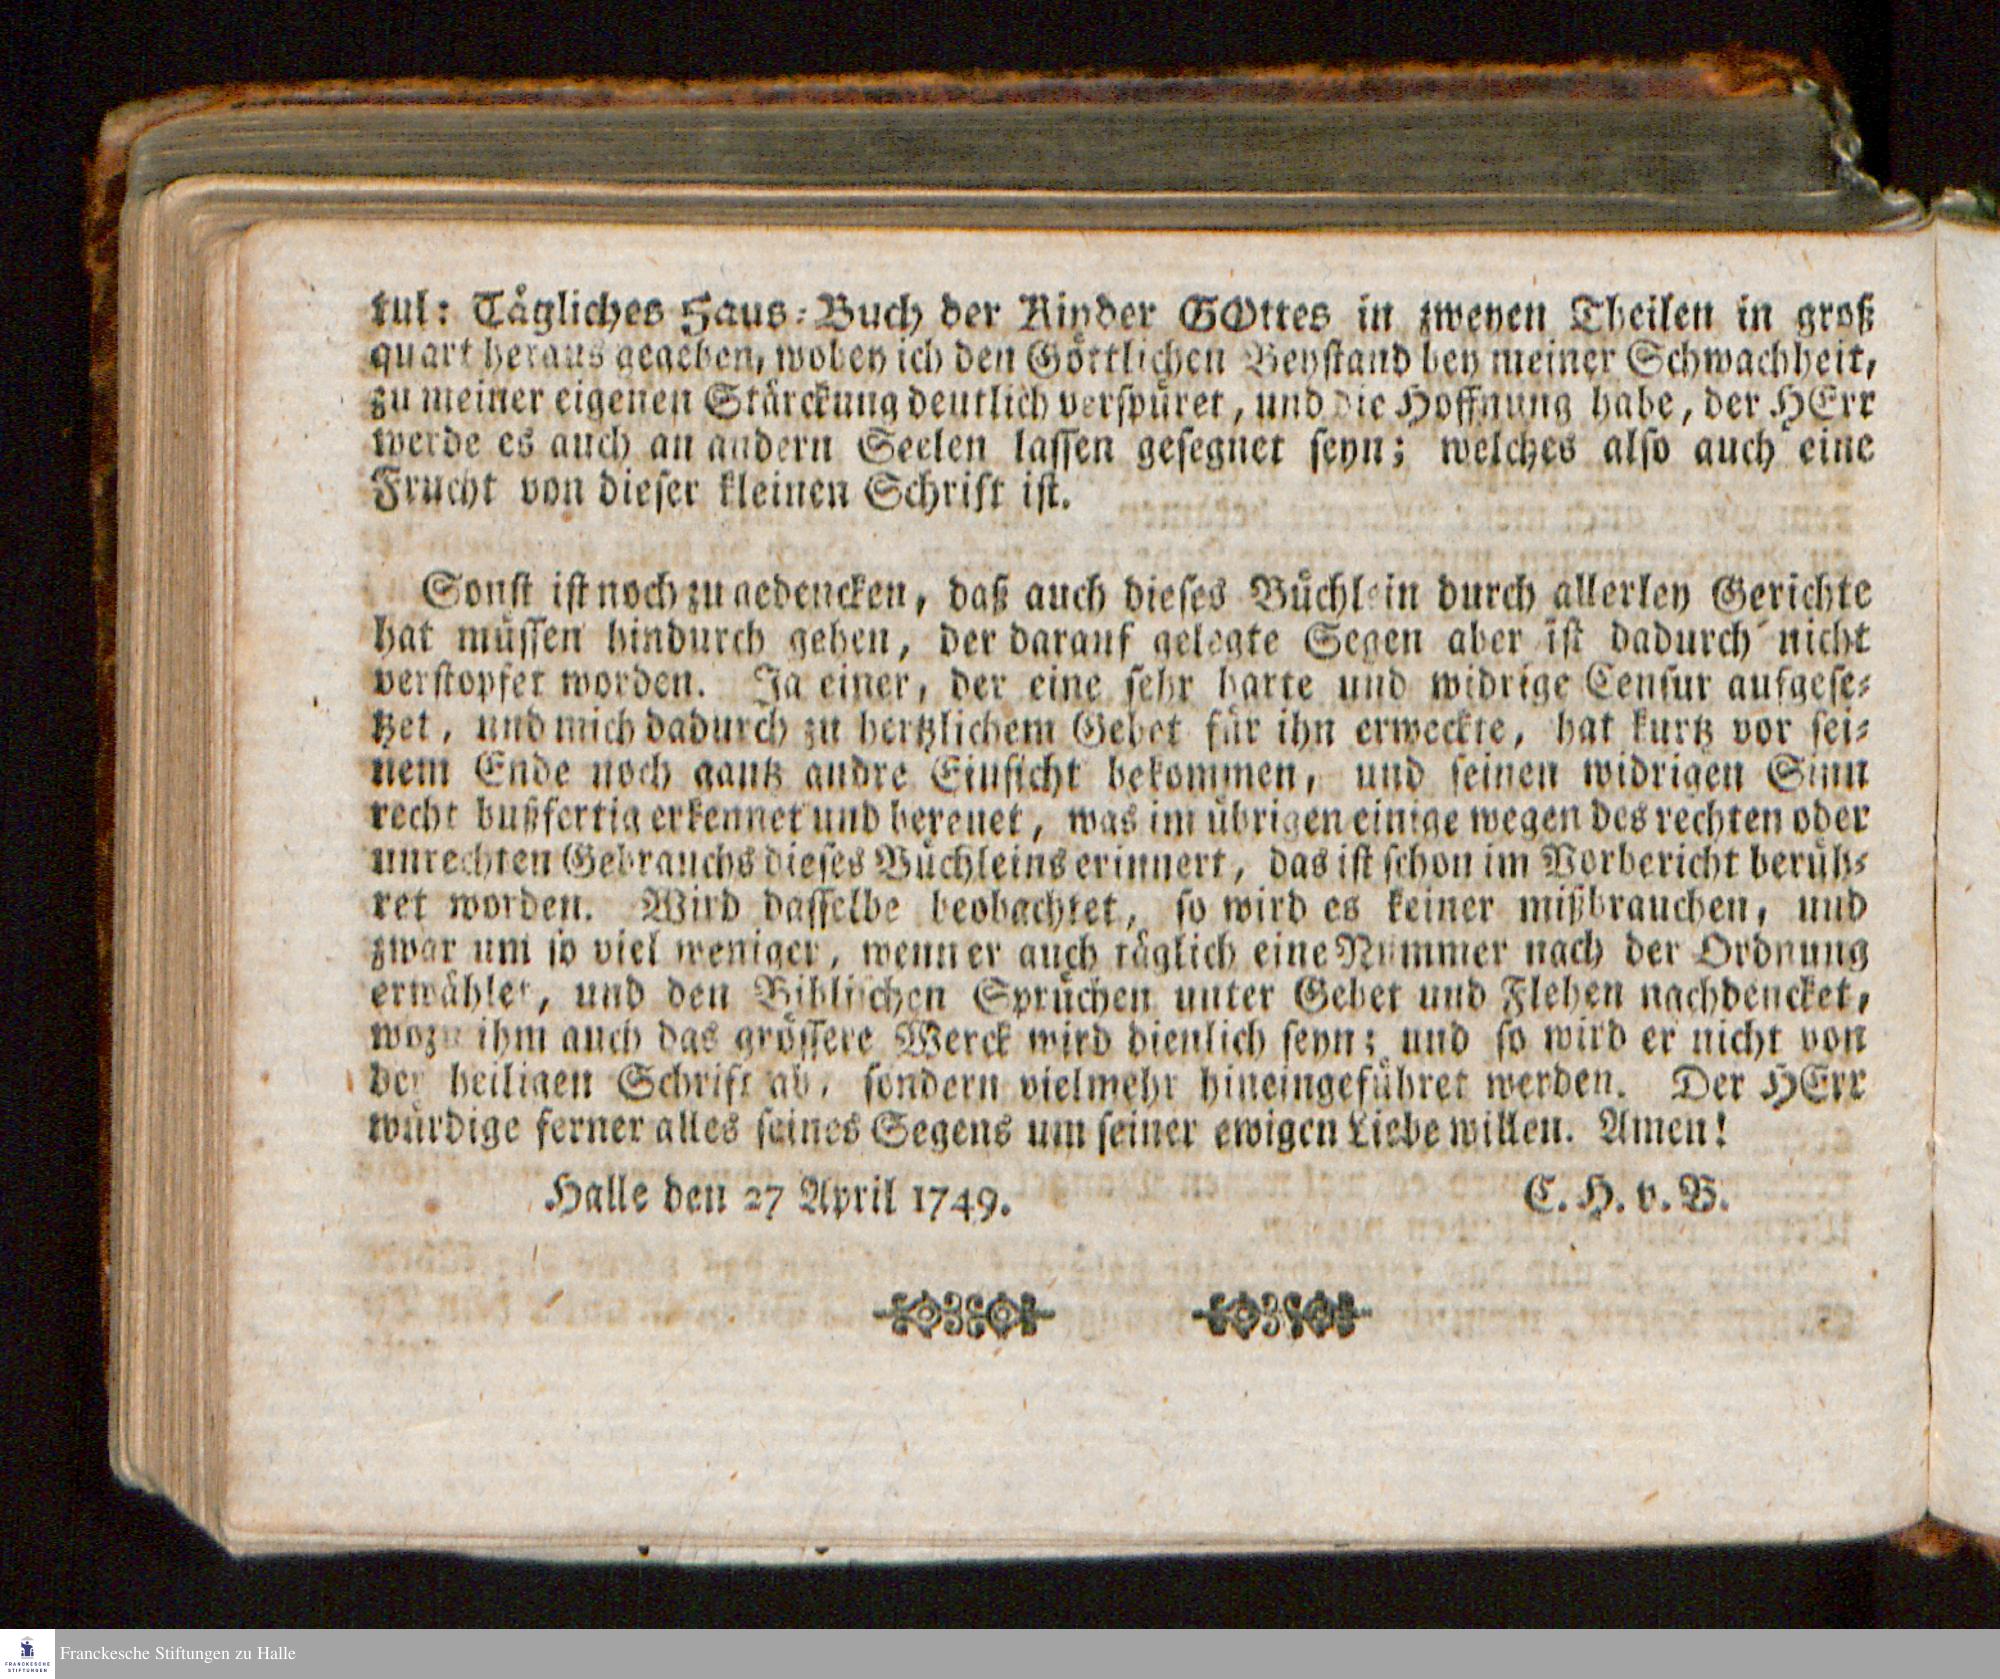 tul: Tägliches Haus-Buch der Kinder GOttes in zweyen Theilen in groß
quart heraus gegeben, wobey ich den Göttlichen Beystand bey meiner Schwachheit,
zu meiner eigenen Stärckung deutlich verspüret, und die Hoffnung habe, der HErr
werde es auch an andern Seelen lassen gesegnet seyn; welches also auch eine
Frucht von dieser kleinen Schrift ist.
Sonst ist noch zu gedencken, daß auch dieses Büchlein durch allerley Gerichte
hat müssen hindurch gehen, der darauf gelegte Segen aber ist dadurch nicht
verstopfet worden. Ja einer, der eine sehr harte und widrige Censur aufgese-
tzet, und mich dadurch zu hertzlichem Gebet für ihn erweckte, hat kurtz vor sei-
nem Ende noch gantz andre Einsicht bekommen, und seinen widrigen Sinn
recht bußfertig erkennet und bereuet, was im übrigen einige wegen des rechten oder
unrechten Gebrauchs dieses Büchleins erinnert, das ist schon im Vorbericht berüh-
ret worden. Wird dasselbe beobachtet, so wird es keiner mißbrauchen, und
zwar um so viel weniger, wenn er auch täglich eine Nummer nach der Ordnung
erwählet, und den Biblischen Sprüchen unter Gebet und Flehen nachdencket,
wozu ihm auch das grössere Werck wird dienlich seyn; und so wird er nicht von
der heiligen Schrift ab, sondern vielmehr hineingeführet werden. Der HErr
würdige ferner alles seines Segens um seiner ewigen Liebe willen. Amen!
Halle den 27 April 1749. C. H. v. B.
FRANCKESCHE
STIFTUNGEN
Franckesche Stiftungen zu Halle